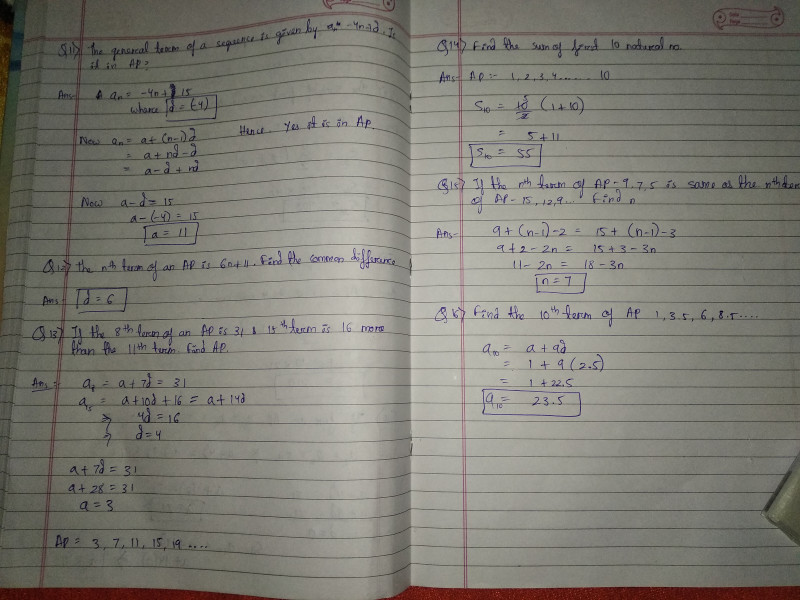 Q11) The general term of a sequence is given by aₙ = -4n + 15. Is
it in AP?
Ans- aₙ = -4n + 15
where d = (-4)
Now aₙ = a + (n-1)d
= a + nd - d
= a - d + nd
Hence, Yes it is in AP.
Now a-d = 15
a-(-4) = 15
a = 11
Q12) The nth term of an AP is 6n+11. Find the common difference
Ans d = 6
Q13) If the 8th term of an AP is 31 & 15th term is 16 more
than the 11th term. Find AP.
Ans - a₈ = a + 7d = 31
a₁₅ = a+10d+16 = a+14d
⇒ 4d = 16
⇒ d = 4
a + 7d = 31
a + 28 = 31
a = 3
AP = 3, 7, 11, 15, 19 ....
Q14) Find the sum of first 10 natural no.
Ans- AP :- 1, 2, 3, 4 ..... 10
S₁₀ = 10/2 (1+10)
= 5+11
S₁₀ = 55
Q15) If the nth term of AP - 9, 7, 5 is same as the nth term
of AP - 15, 12, 9... Find n
Ans- 9 + (n-1)-2 = 15 + (n-1)-3
9+2-2n = 15+3-3n
11-2n = 18-3n
n = 7
Q16) Find the 10th term of AP 1, 3.5, 6, 8.5 ....
a₁₀ = a + 9d
= 1 + 9 (2.5)
= 1 + 22.5
a₁₀ = 23.5